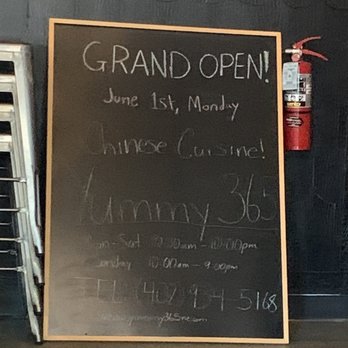 GRAND OPEN!
June 1st, Monday
Chinese Cuisine!
Yummy 365
Mon-Sat 10:30am - 10:00pm
Sunday 10:00am - 9:00pm
TEL: (407) 934-5168